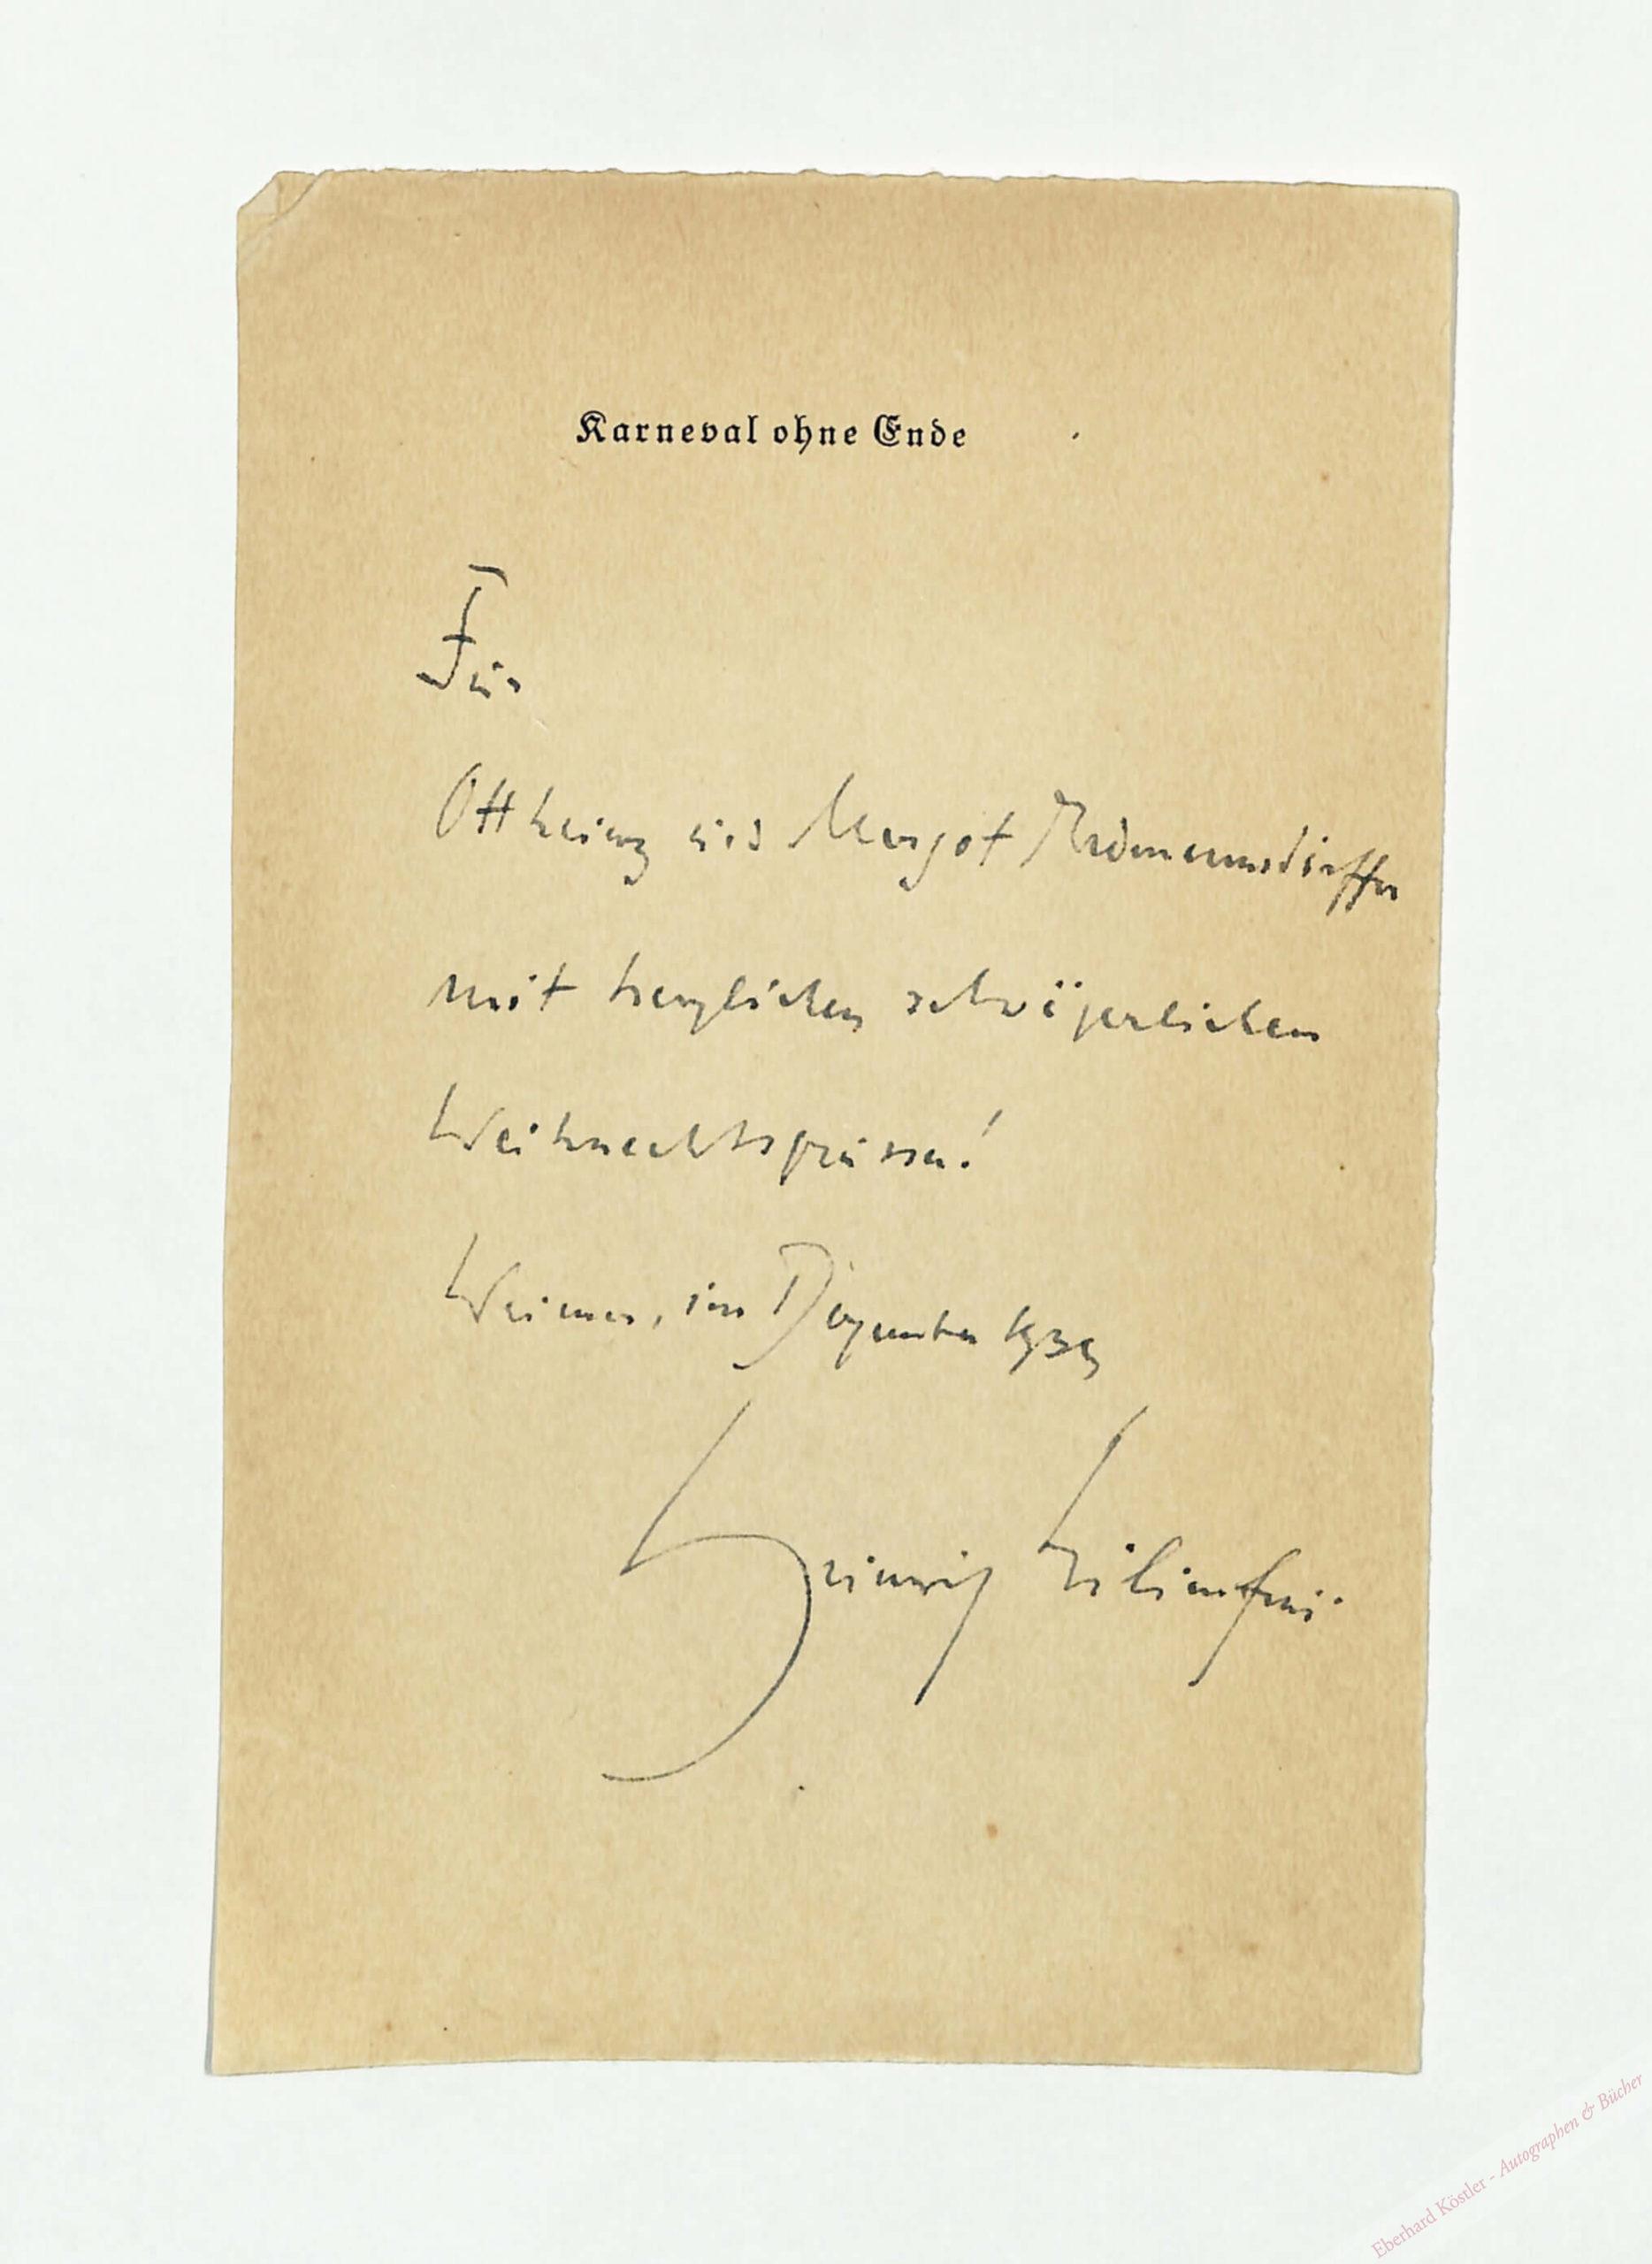 Karneval ohne Ende
Für
Ottheinz und Margot Erdmannsdörffer
mit herzlichen schwägerlichen
Weihnachtsgrüssen!
Weimar, im Dezember 1939
Heinrich Lilienfein.
Eberhard Köstler - Autographen & Bücher